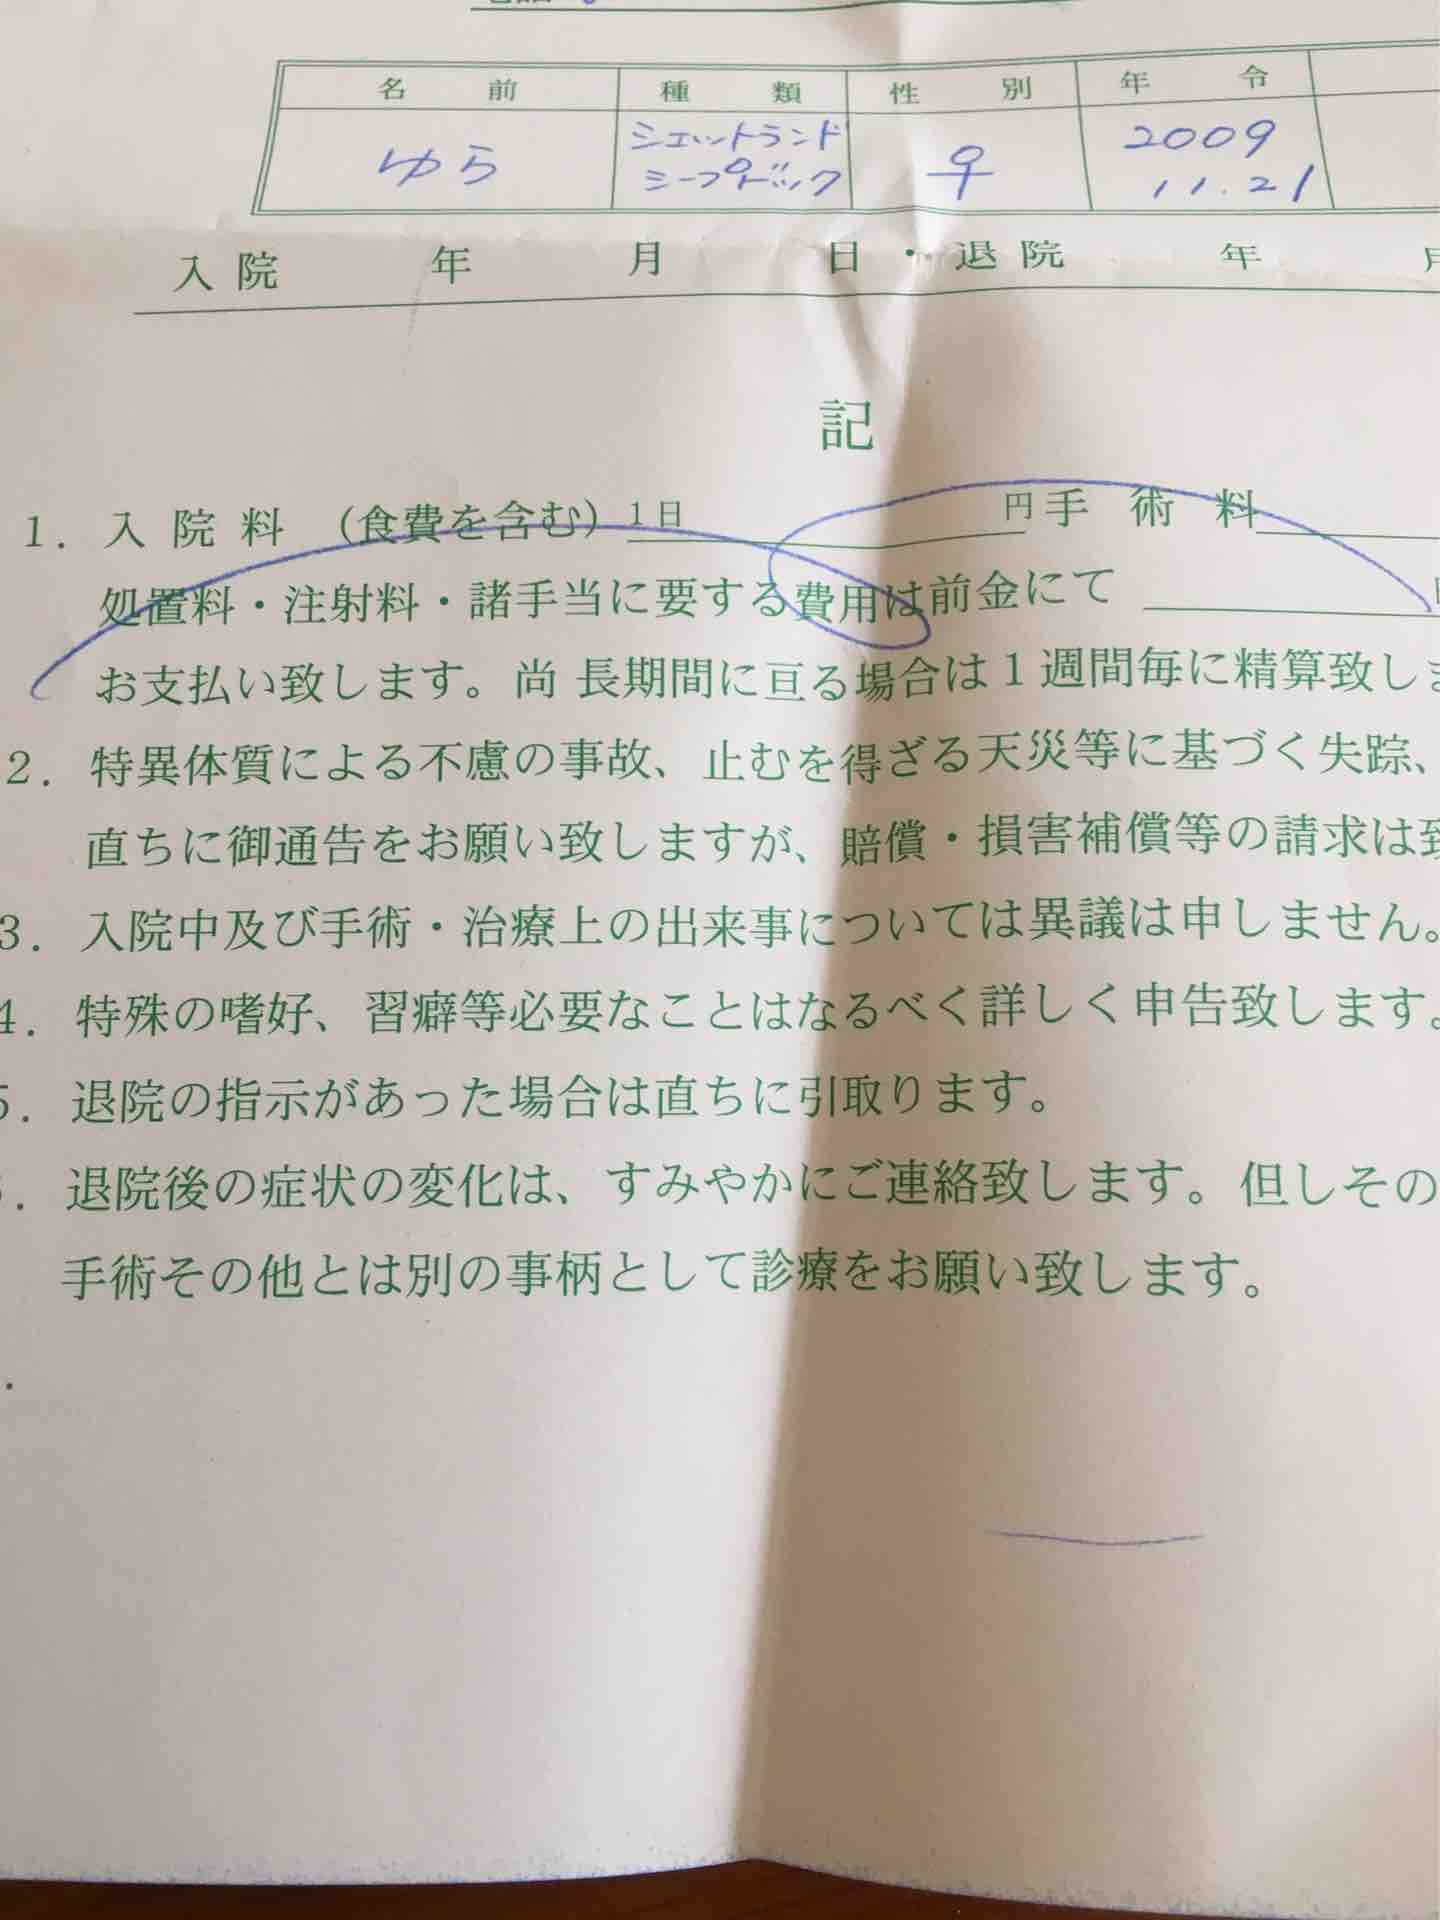 名前 種類 性別 年令
ゆら シェットランド シープドック ♀ 2009 11.21
入院 年 月 日・退院 年 月
記
1. 入院料 (食費を含む) 1日 円 手術料
処置料・注射料・諸手当に要する費用は前金にて
お支払い致します。尚 長期間に亘る場合は1週間毎に精算致しま
2. 特異体質による不慮の事故、止むを得ざる天災等に基づく失踪、
直ちに御通告をお願い致しますが、賠償・損害補償等の請求は致
3. 入院中及び手術・治療上の出来事については異議は申しません。
4. 特殊の嗜好、習癖等必要なことはなるべく詳しく申告致します。
5. 退院の指示があった場合は直ちに引取ります。
. 退院後の症状の変化は、すみやかにご連絡致します。但しその
手術その他とは別の事柄として診療をお願い致します。
.